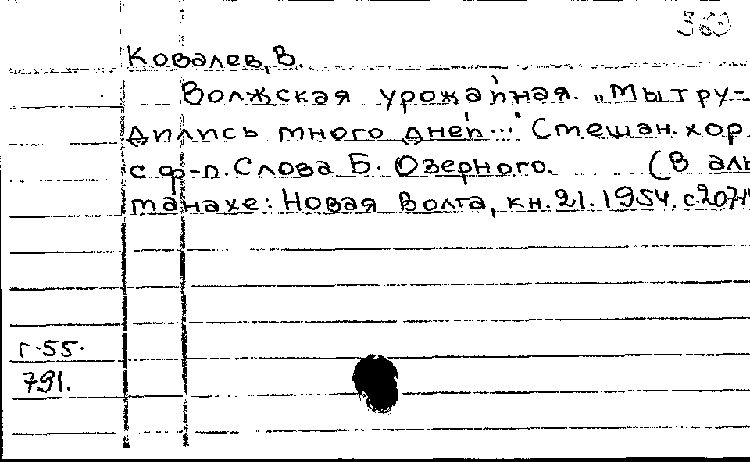 369
Ковалев, В.
Волжская урожайная. „Мы тру-
дились много дней..." Смешан. хор.
с ф-п. Слова Б. Озерного. (В аль
манахе: Новая Волга, кн. 21. 1954, с.207
г.55.
791.